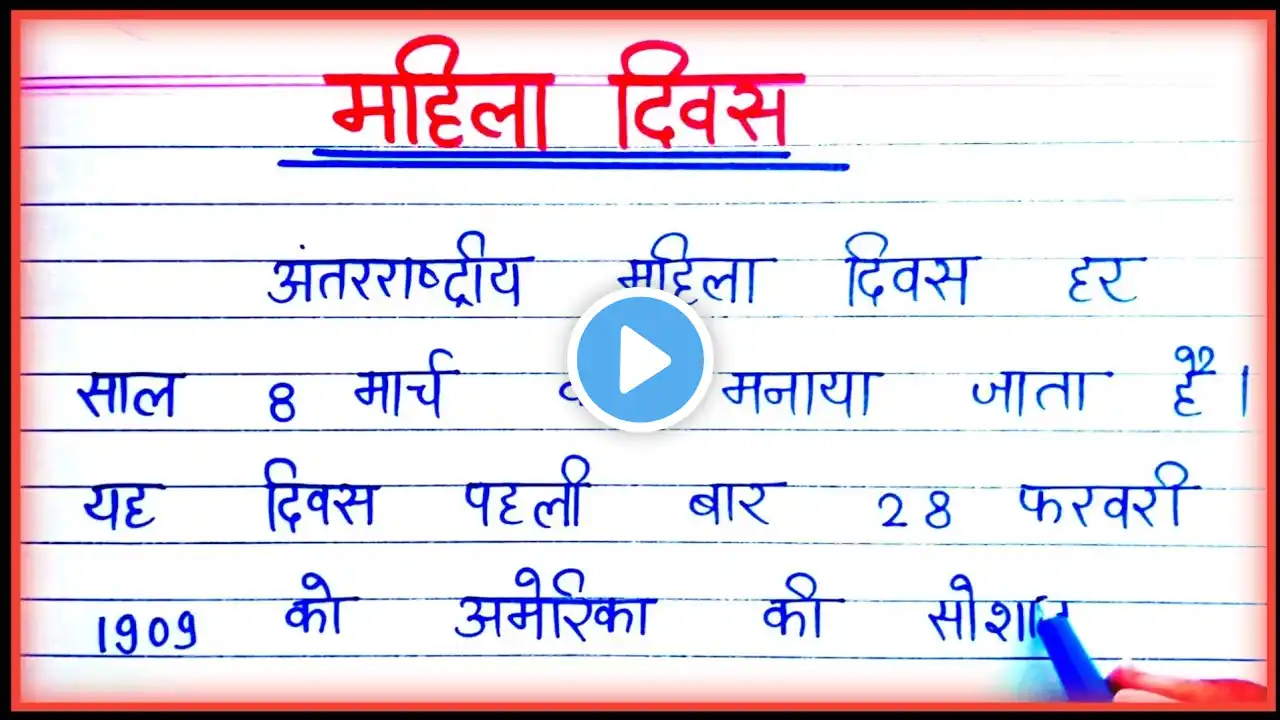 महिला दिवस
अंतरराष्ट्रीय महिला दिवस हर
साल 8 मार्च मनाया जाता है।
यह दिवस पहली बार 28 फरवरी
1909 को अमेरिका की